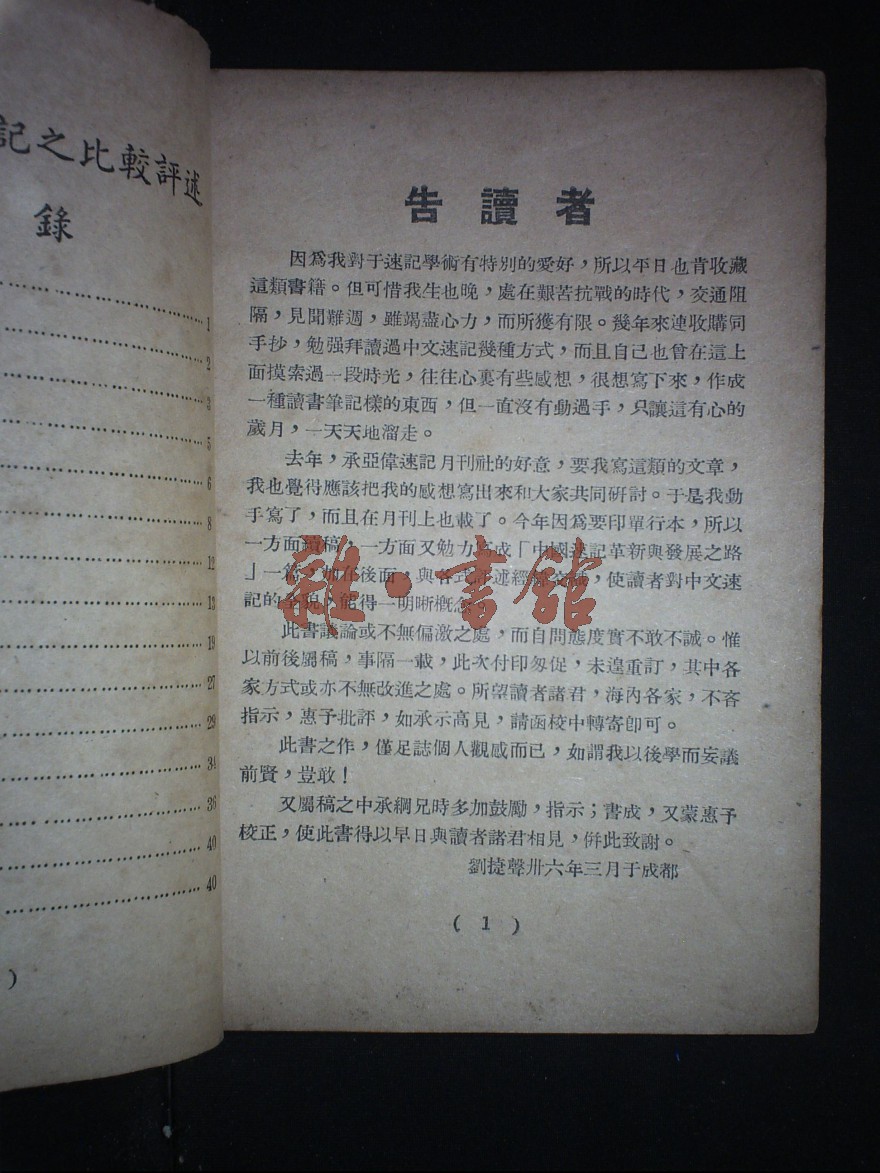 記之比較評述
錄
1
2
3
5
6
8
12
13
19
27
29
34
36
40
40
)
告讀者
因爲我對于速記學術有特別的愛好,所以平日也肯收藏
這類書籍。但可惜我生也晚,處在艱苦抗戰的時代,交通阻
隔,見聞難週,雖竭盡心力,而所獲有限。幾年來連收購同
手抄,勉强拜讀過中文速記幾種方式,而且自己也曾在這上
面摸索過一段時光,往往心裏有些感想,很想寫下來,作成
一種讀書筆記樣的東西,但一直沒有動過手,只讓這有心的
歲月,一天天地溜走。
去年,承亞偉速記月刊社的好意,要我寫這類的文章,
我也覺得應該把我的感想寫出來和大家共同研討。于是我動
手寫了,而且在月刊上也載了。今年因爲要印單行本,所以
一方面續稿,一方面又勉力寫成「中國速記革新與發展之路
」一篇,加在後面,與各式評述經緯交織,使讀者對中文速
記的全貌,能得一明晰概念。
此書議論或不無偏激之處,而自問態度實不敢不誠。惟
以前後屬稿,事隔一載,此次付印匆促,未遑重訂,其中各
家方式或亦不無改進之處。所望讀者諸君,海內各家,不吝
指示,惠予批評,如承示高見,請函校中轉寄卽可。
此書之作,僅足誌個人觀感而已,如謂我以後學而妄議
前賢,豈敢!
又屬稿之中承綱兄時多加鼓勵,指示;書成,又蒙惠予
校正,使此書得以早日與讀者諸君相見,併此致謝。
劉捷聲卅六年三月于成都
( 1 )
雜·書館